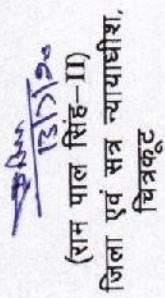 13/7/20
(राम पाल सिंह-II)
जिला एवं सत्र न्यायाधीश,
चित्रकूट